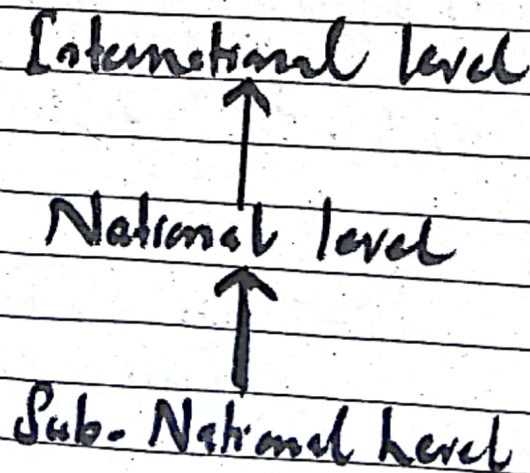 International level
National level
Sub-National Level